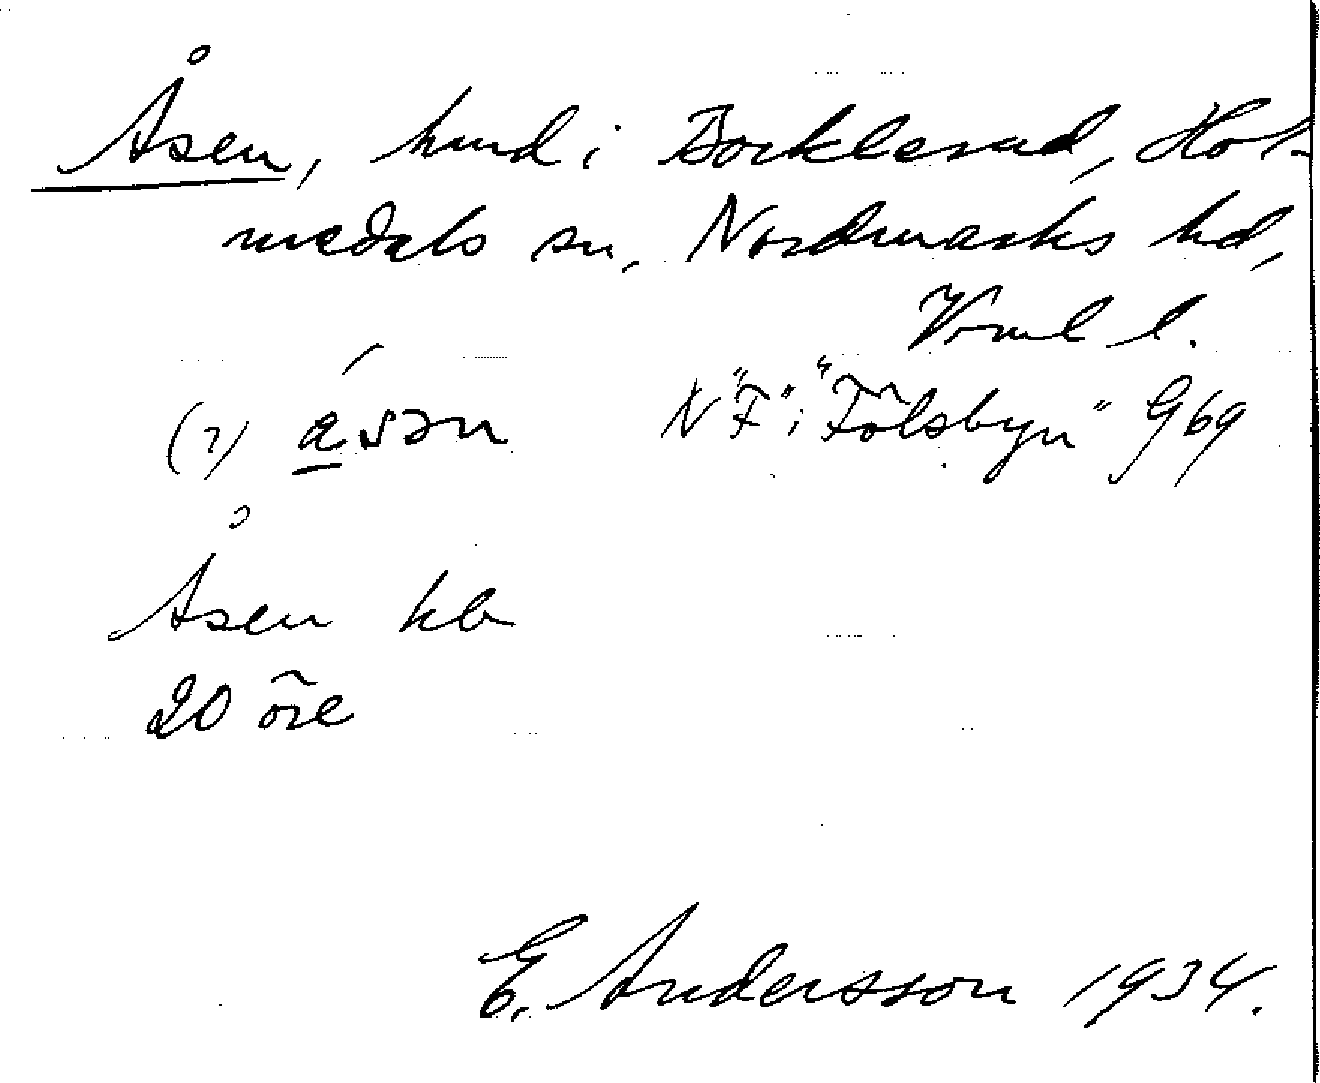 Åsen, hmd i Bocklerud, Hol-
medals sn, Nordmarks hd,
Vrml l.
(?) ásən N "F" i "Fölsbyn" G 69
Åsen kb
20 öre
E. Andersson 1934.